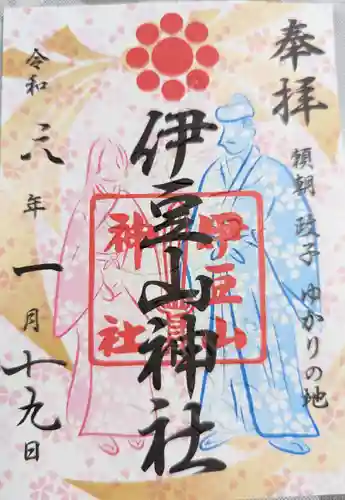 奉拝
頼朝 政子 ゆかりの地
伊豆山神社
伊豆山
神社
令和 二八年 一月十九日